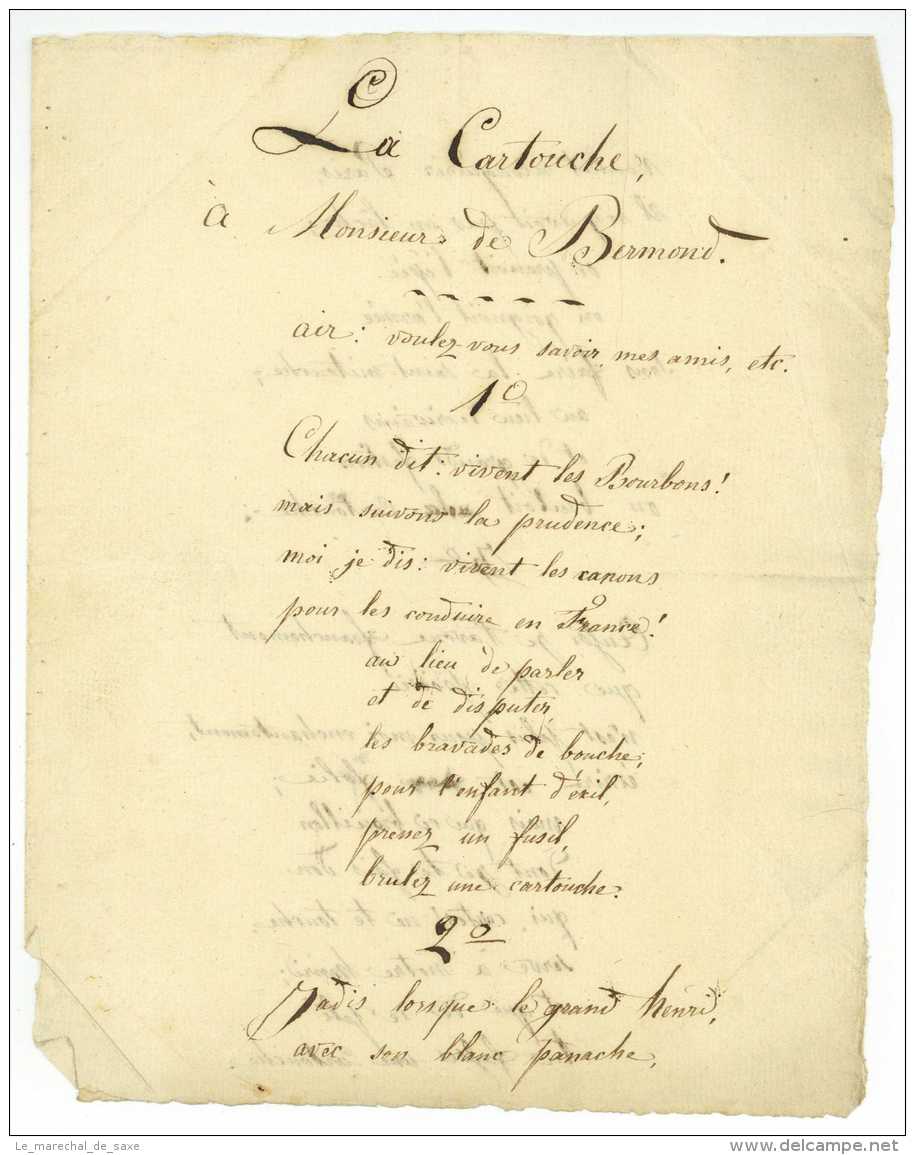 La Cartouche,
à Monsieur de Bermond.
air: voulez-vous savoir, mes amis, etc.
1º
Chacun dit: vivent les Bourbons!
mais suivons la prudence;
moi je dis: vivent les canons
pour les conduire en France!
au lieu de parler
et de disputer,
les bravades de bouche,
pour l'enfant d'éxil,
prenez un fusil,
brulez une cartouche.
2º
Jadis lorsque le grand henri,
avec son blanc panache,
Le_marechal_de_saxe
www.delcampe.net